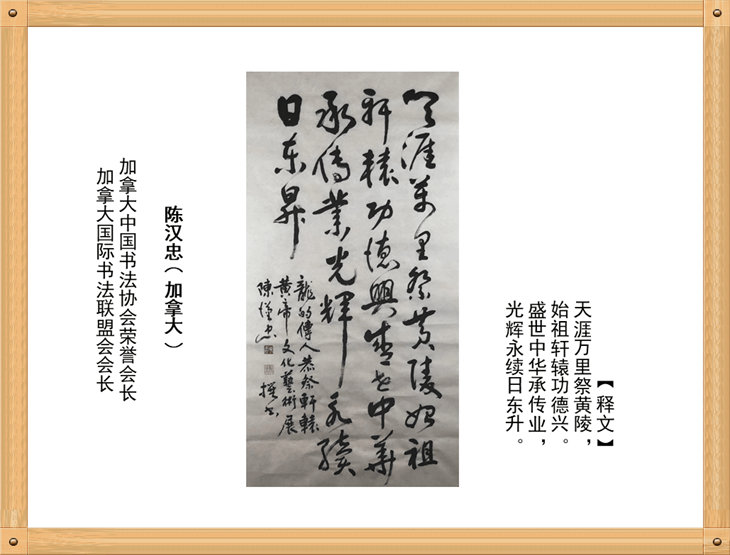 【释文】
天涯万里祭黄陵，
始祖轩辕功德兴。
盛世中华承传业，
光辉永续日东升。
天涯萬里祭黄陵始祖
軒轅功德興盛世中華
承傳業光輝永續
日东昇
龍的傳人恭祭軒轅
黄帝文化藝術展
陳漢忠 撰书
陈汉忠（加拿大）
加拿大中国书法协会荣誉会长
加拿大国际书法联盟会会长